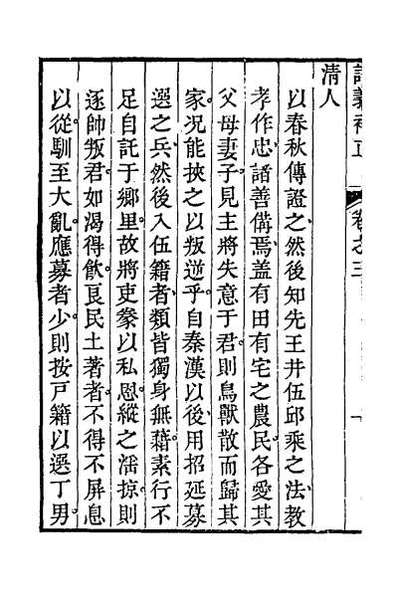 詩義補正 卷之三
清人
以春秋傳證之然後知先王井伍邱乘之法教
孝作忠諸善備焉蓋有田有宅之農民各愛其
父母妻子見主將失意于君則鳥獸散而歸其
家况能挾之以叛逆乎自秦漢以後用招延募
選之兵然後入伍籍者類皆獨身無藉素行不
足自託于鄉里故將吏豢以私恩縱之淫掠則
逐帥叛君如渴得飲良民土著者不得不屏息
以從馴至大亂應募者少則按戸籍以選丁男